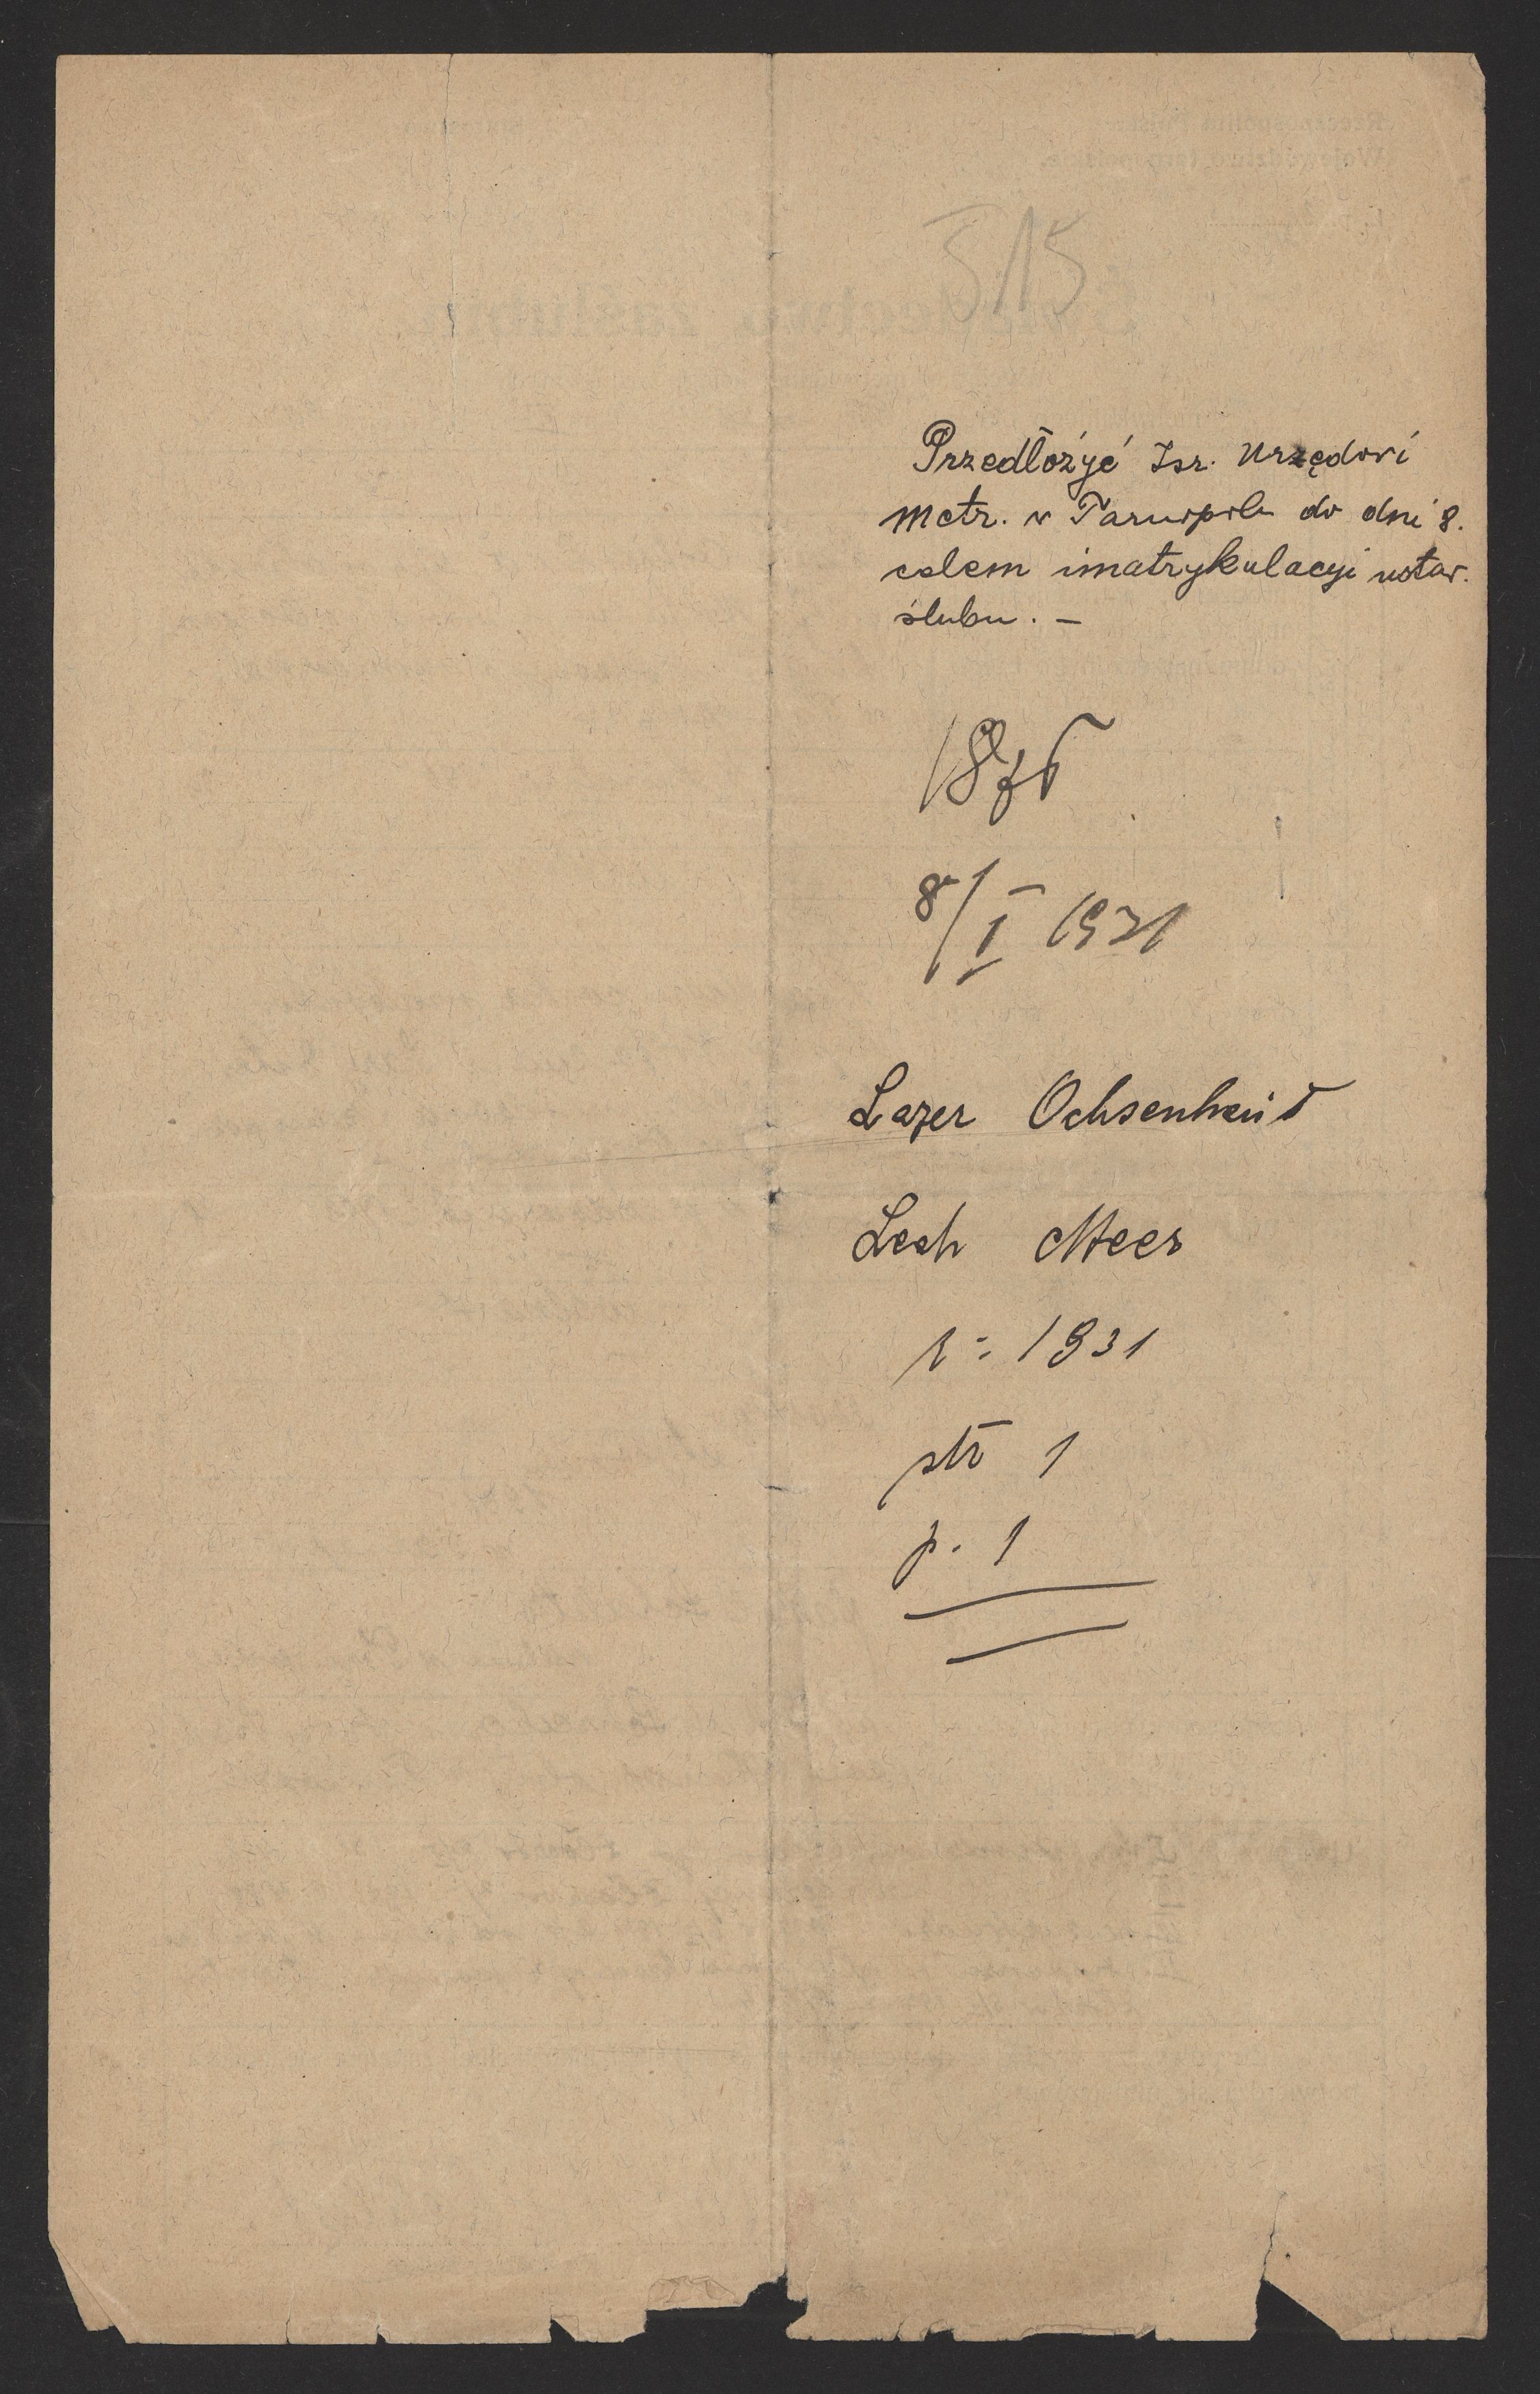 515
Przedłożyć Izr. Urzędowi
metr. w Tarnopolu do dni 8.
celem imatrykulacyi ustaw.
ślubu. —
8/I 1931
Lazer Ochsenheit
Leah Meer
r: 1931
str 1
p. 1